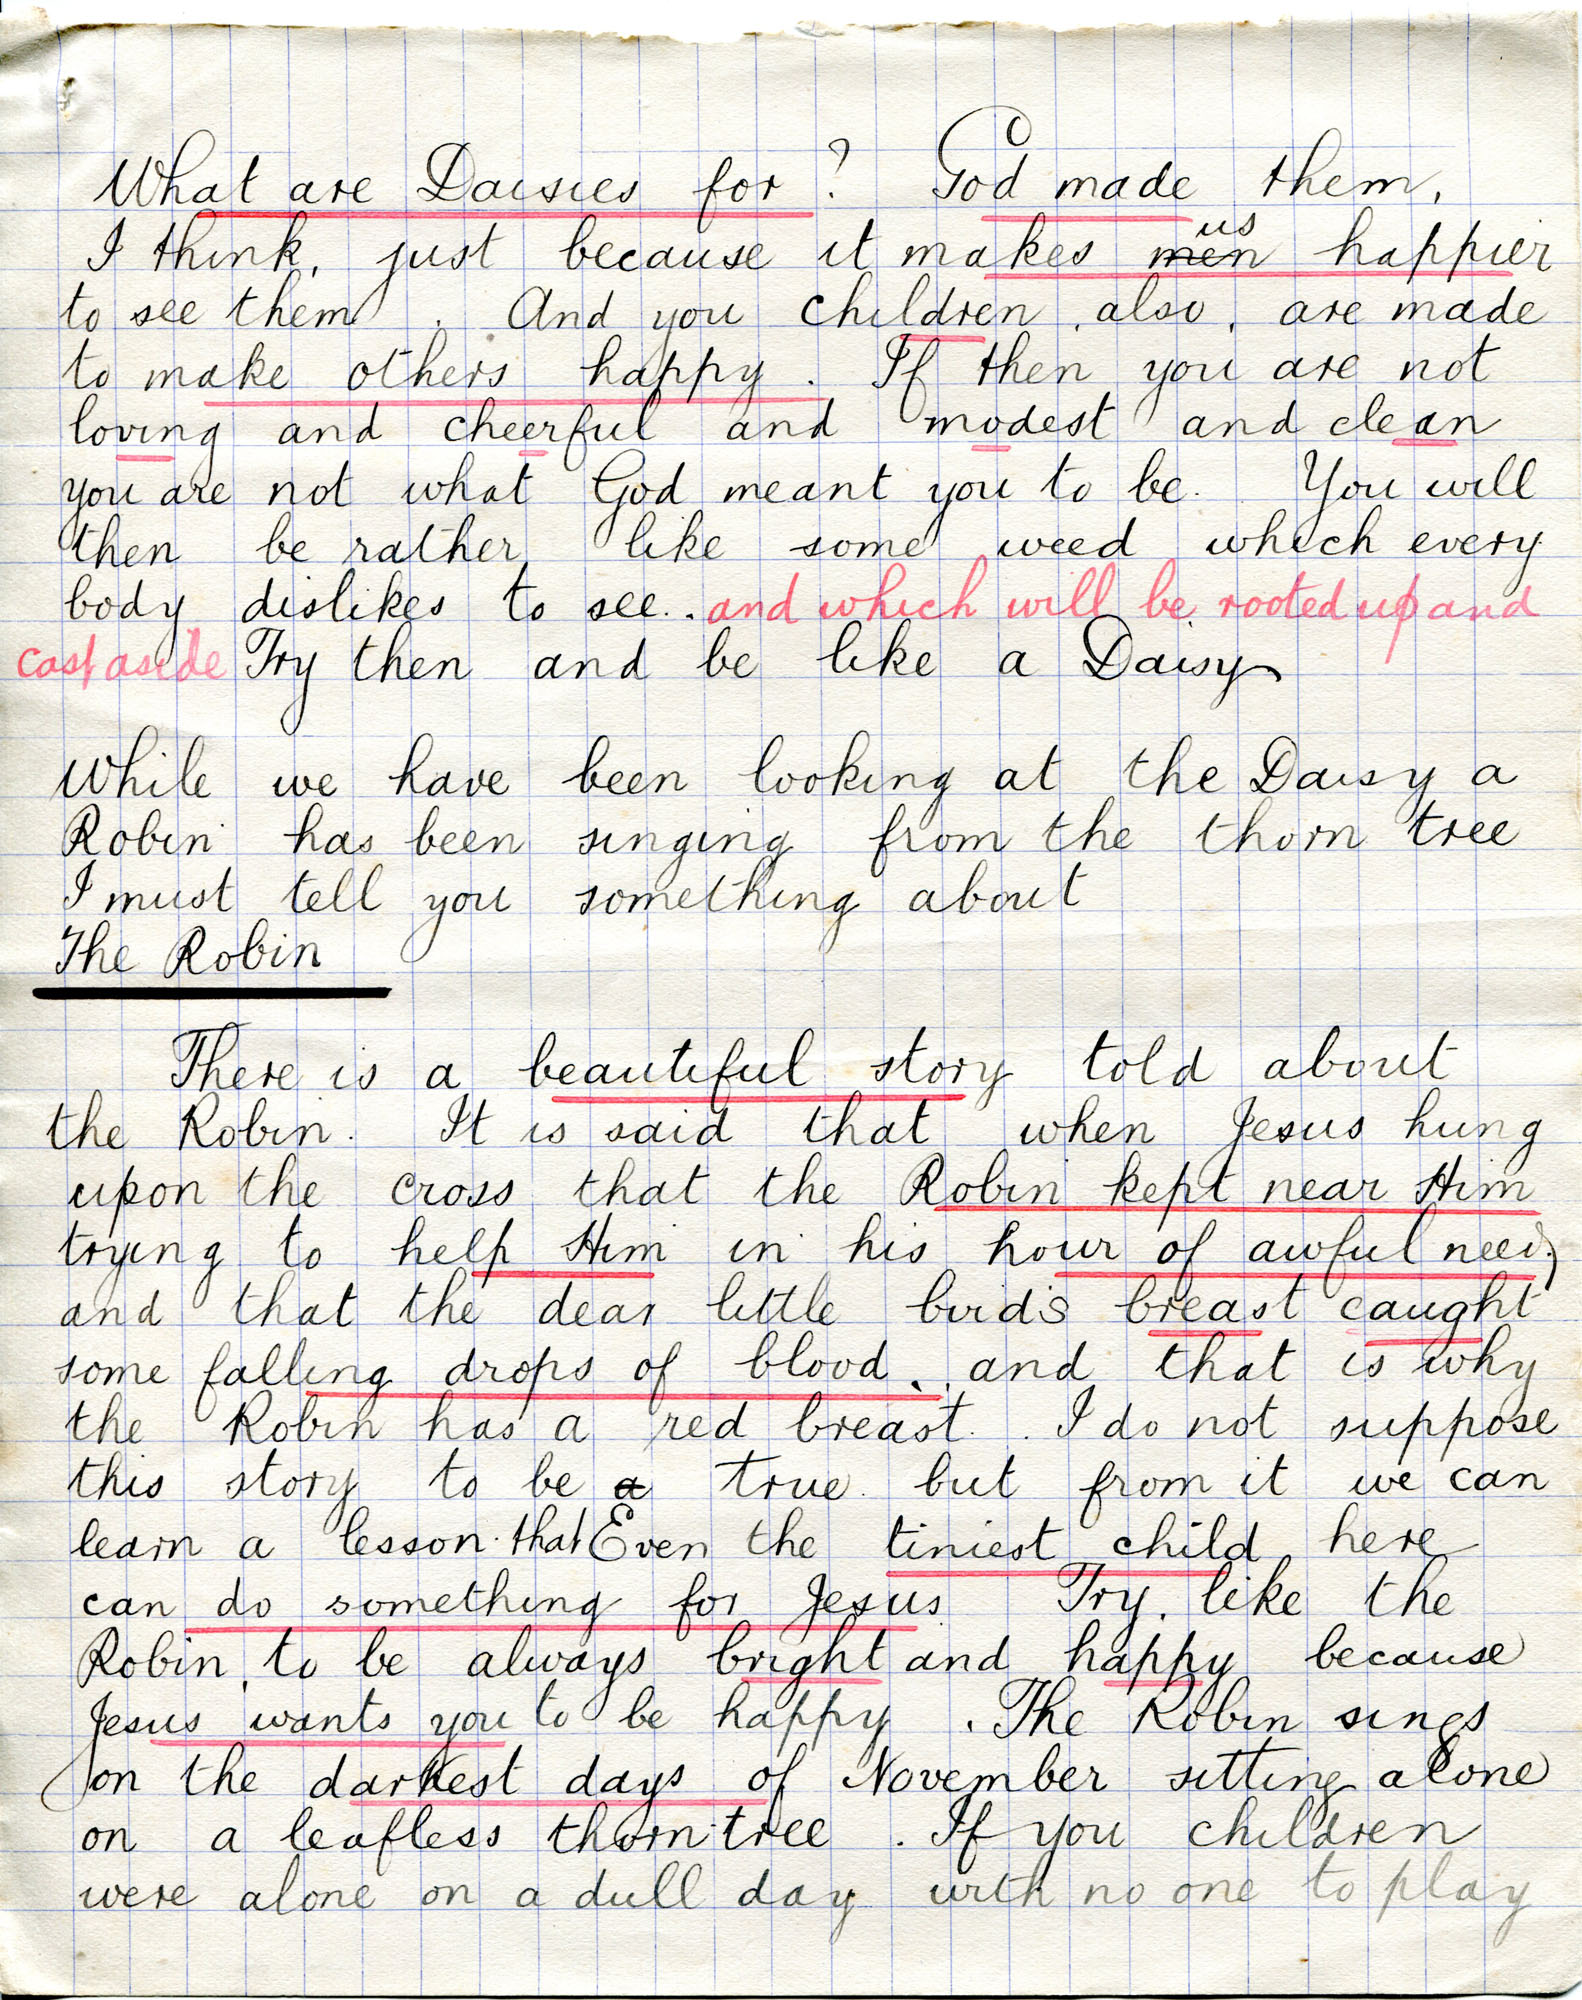 What are Daisies for? God made them,
I think, just because it makes ~~men~~ us happier
to see them. And you children, also, are made
to make others happy. If then you are not
loving and cheerful and modest and clean
you are not what God meant you to be. You will
then be rather like some weed which every
body dislikes to see. and which will be rooted up and
cast aside Try then and be like a Daisy
While we have been looking at the Daisy a
Robin has been singing from the thorn tree
I must tell you something about
The Robin
There is a beautiful story told about
the Robin. It is said that when Jesus hung
upon the cross that the Robin kept near Him
trying to help Him in his hour of awful need,
and that the dear little bird's breast caught
some falling drops of blood, and that is why
the Robin has a red breast. I do not suppose
this story to be ~~a~~ true but from it we can
learn a lesson. that Even the tiniest child here
can do something for Jesus Try, like the
Robin, to be always bright and happy because
Jesus wants you to be happy. The Robin sings
on the darkest days of November sitting alone
on a leafless thorn-tree. If you children
were alone on a dull day with no one to play